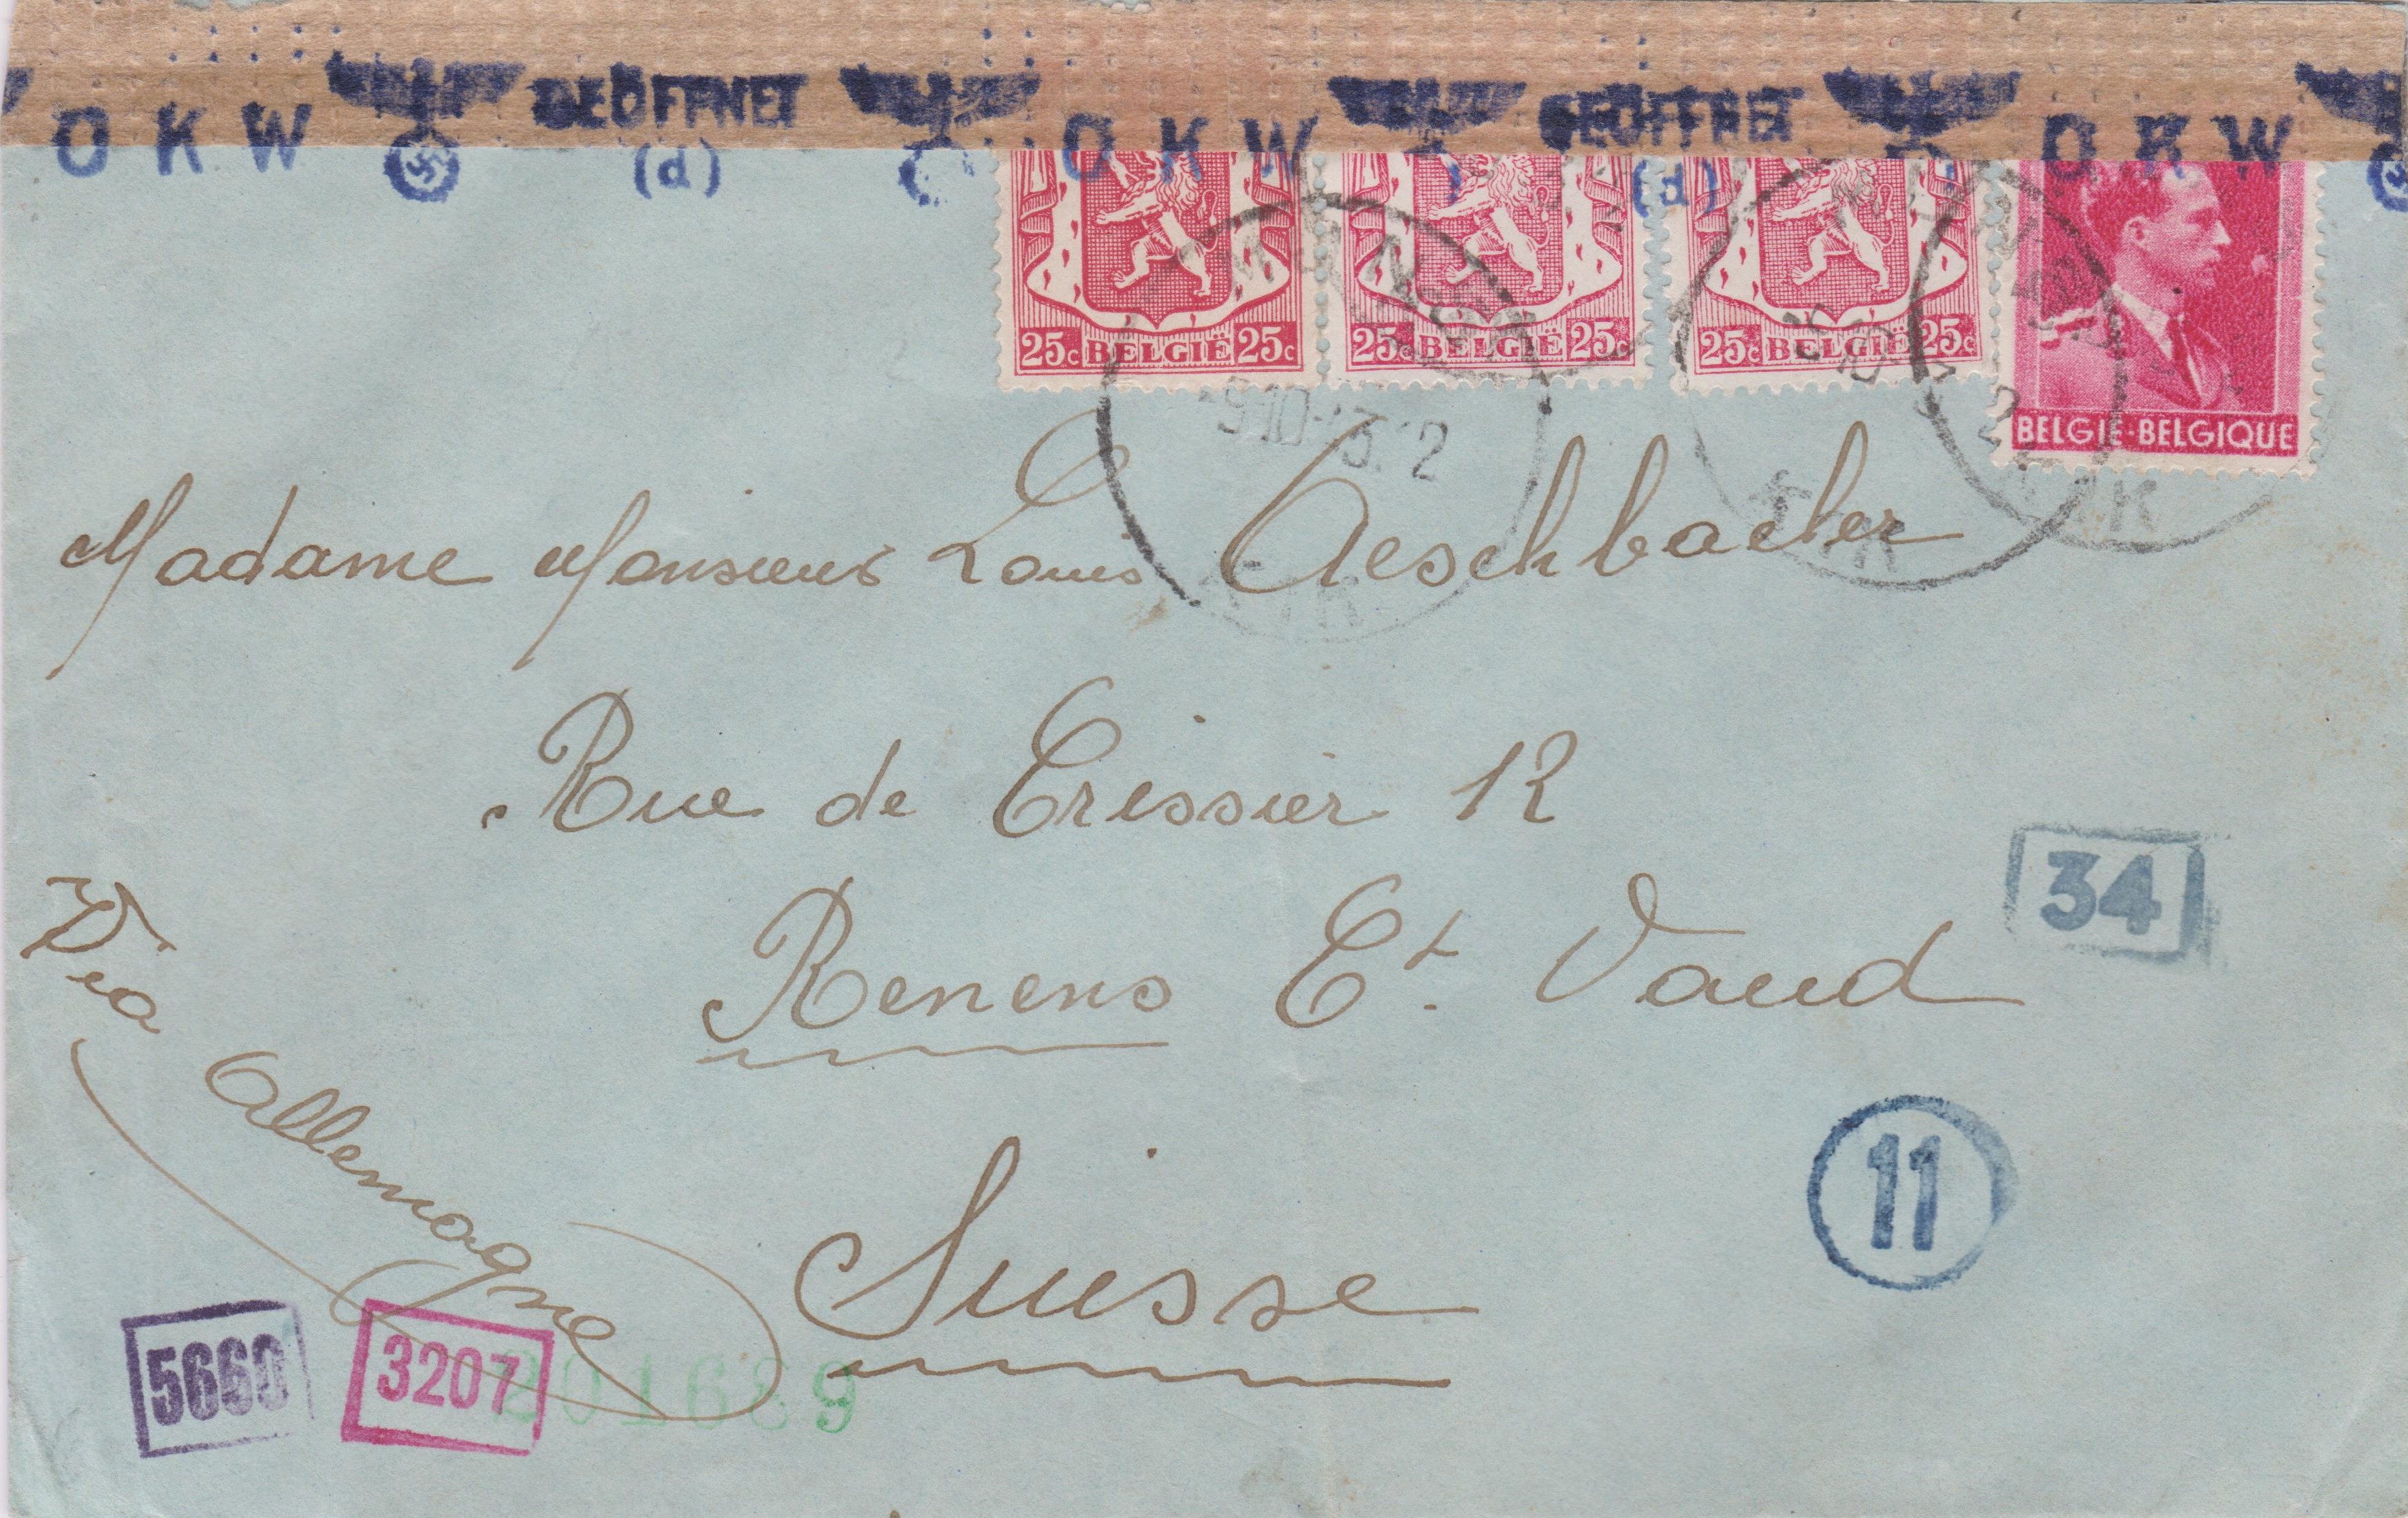 O K W GEÖFFNET O K W GEÖFFNET O K W
(d) (d)
25c BELGIË 25c 25c BELGIË 25c 25c BELGIË 25c
BELGIE-BELGIQUE
Madame Monsieur Louis Aeschbacher
Rue de Crissier 12
Renens Ct. Vaud
34
Via Allemagne
11
Suisse
5660 3207 201639